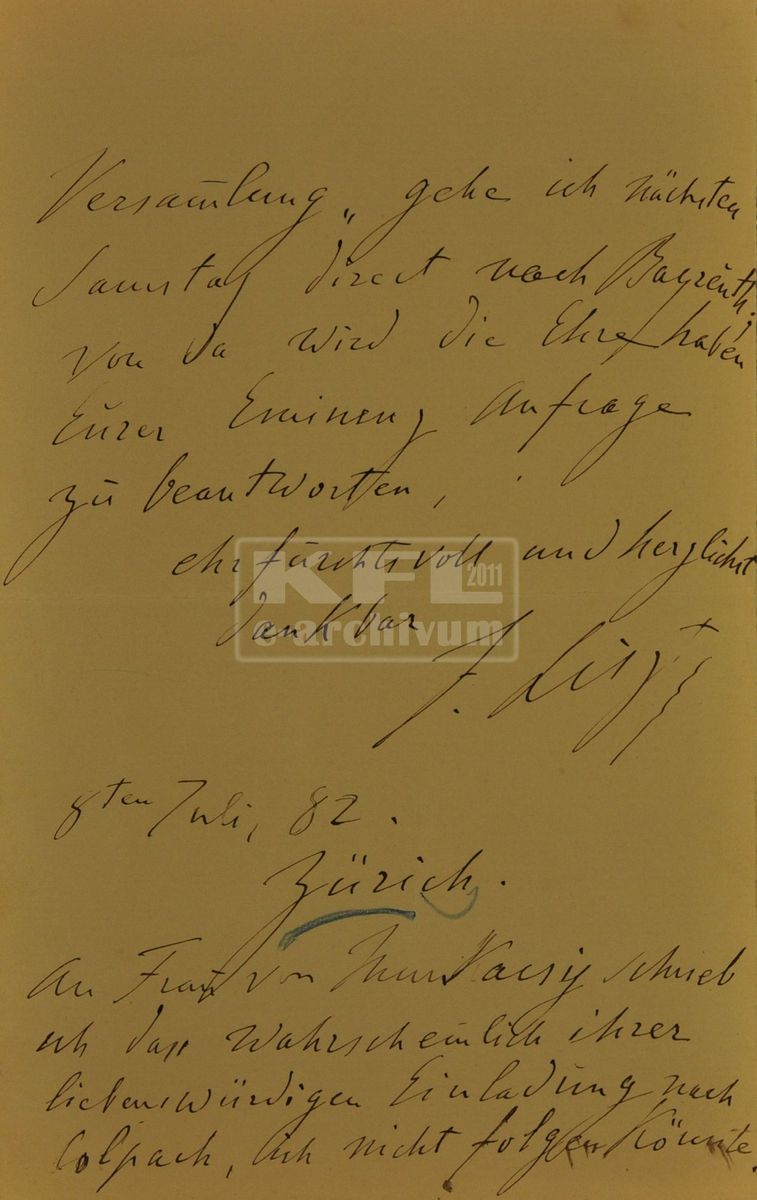 Versam̄lung„ gehe ich nächsten
Samstag direct nach Bayreuth;
von da wird die Ehre haben
Eurer Eminenz Anfrage
zu beantworten,
ehrfurchtsvoll und herzlichst
dankbar
F. Liszt
8ten Juli, 82.
Zürich.
An Frau von Munkacsy schrieb
ich dass wahrscheinlich ihrer
liebenswürdigen Einladung nach
Colpach, ich nicht folgen könnte.
KFL 2011
e-archivum